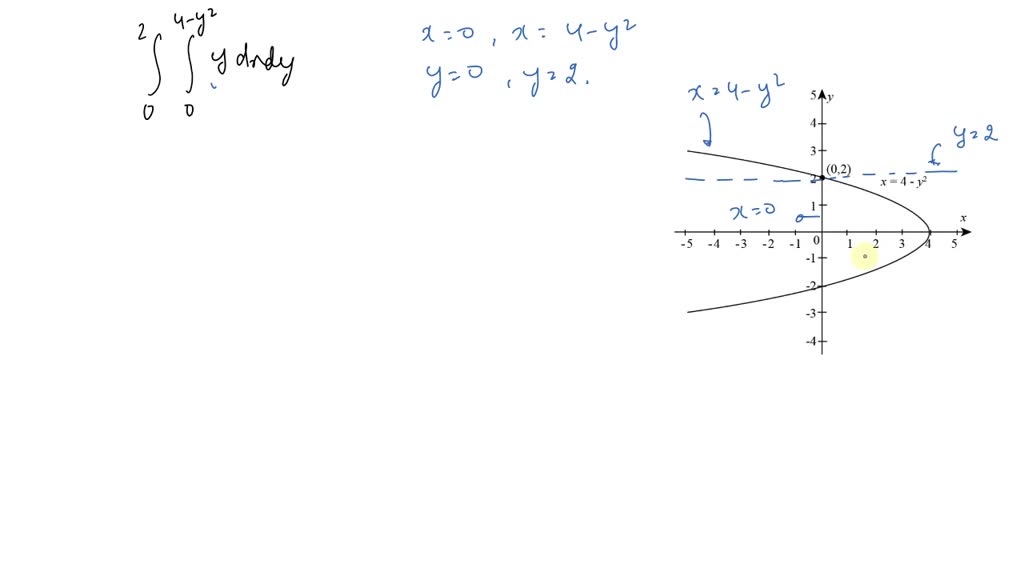 ∫₀² ∫₀^(4-y²) y dx dy
x=0 , x= 4-y²
y=0 , y=2.
x=4-y²
y=2
5 y
4
3
(0,2)
2
x = 4 - y²
x=0
1
x
-5 -4 -3 -2 -1 0 1 2 3 4 5
-1
-2
-3
-4